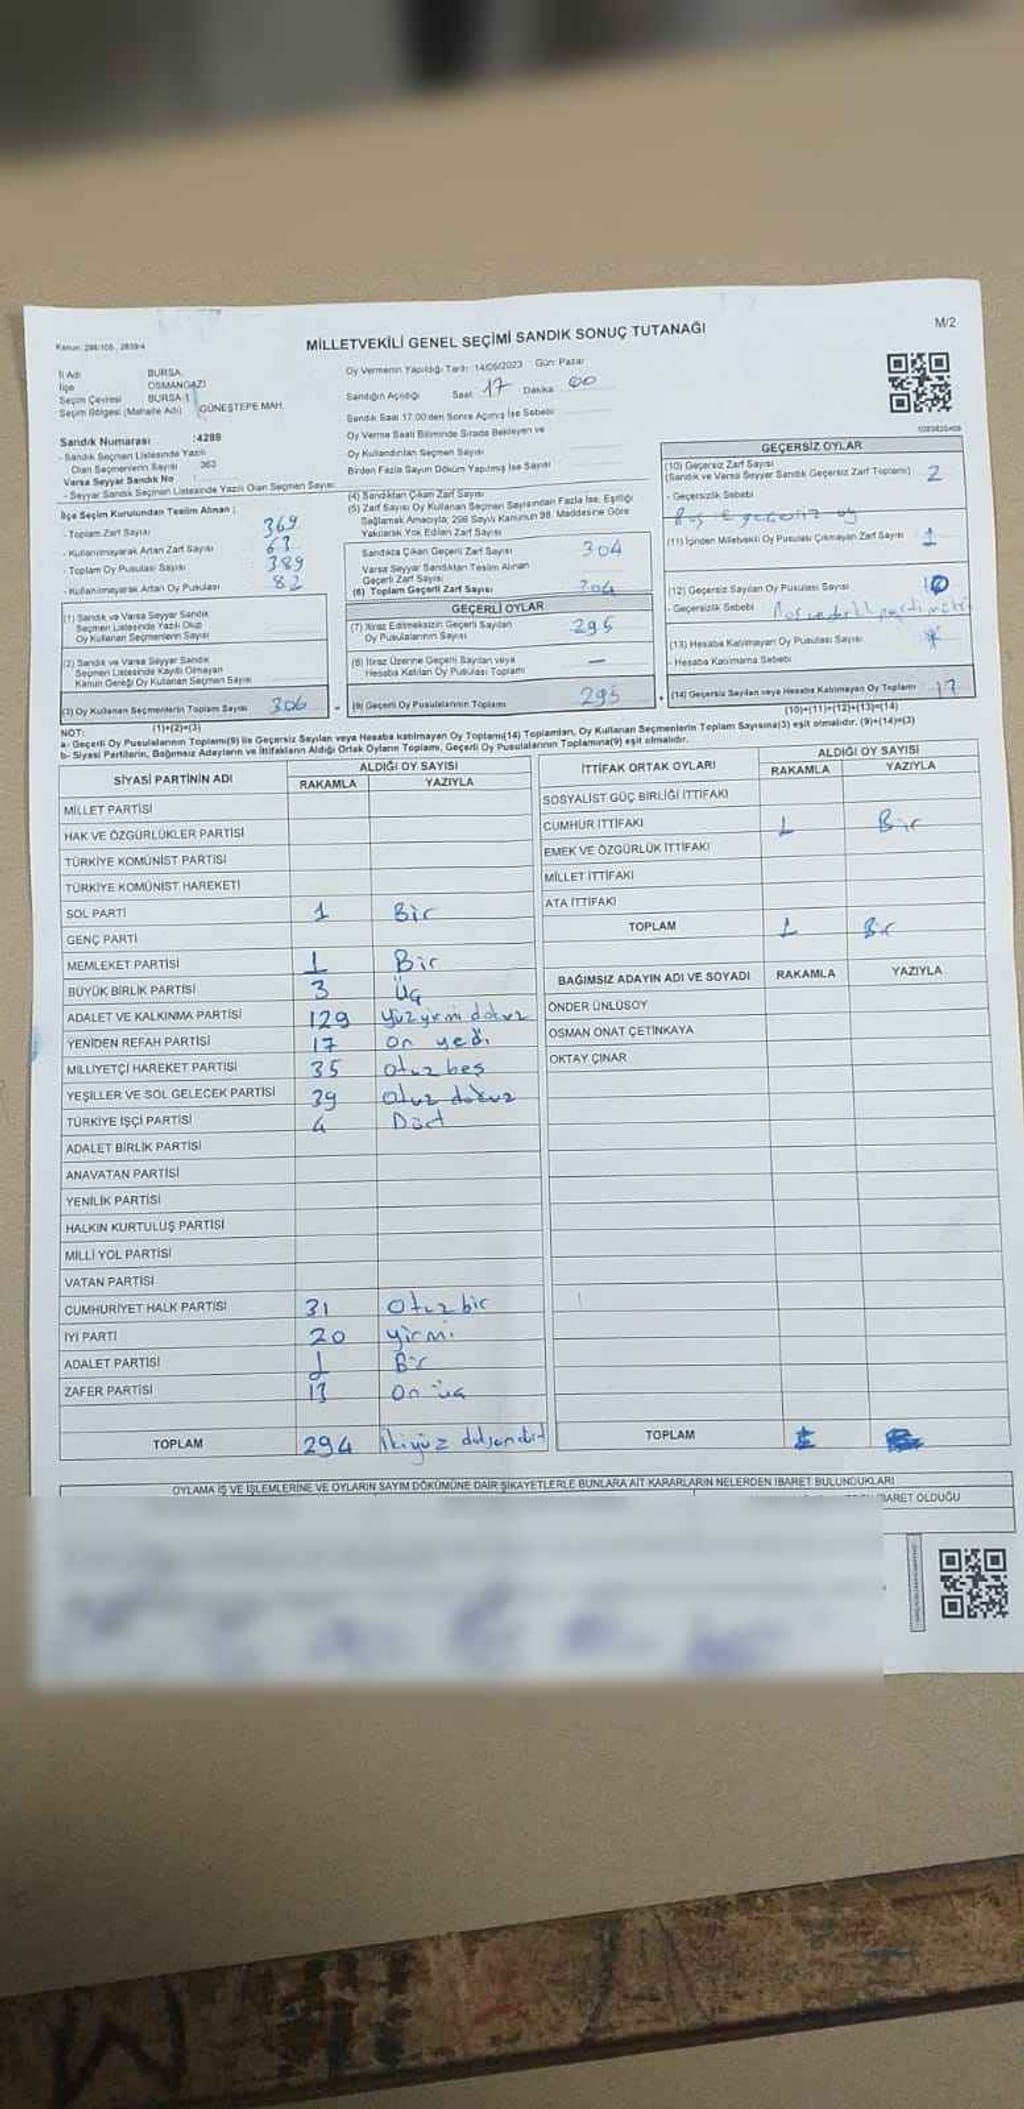 Kanun: 298/105, 2839/4
MİLLETVEKİLİ GENEL SEÇİMİ SANDIK SONUÇ TUTANAĞI
M/2
İl Adı BURSA
İlçe OSMANGAZİ
Seçim Çevresi BURSA-1
Seçim Bölgesi (Mahalle Adı) GÜNEŞTEPE MAH.
Sandık Numarası :4288
- Sandık Seçmen Listesinde Yazılı
Olan Seçmenlerin Sayısı 363
Varsa Seyyar Sandık No
- Seyyar Sandık Seçmen Listesinde Yazılı Olan Seçmen Sayısı
İlçe Seçim Kurulundan Teslim Alınan :
- Toplam Zarf Sayısı 369
- Kullanılmayarak Artan Zarf Sayısı 63
- Toplam Oy Pusulası Sayısı 389
- Kullanılmayarak Artan Oy Pusulası 82
(1) Sandık ve Varsa Seyyar Sandık
Seçmen Listesinde Yazılı Olup
Oy Kullanan Seçmenlerin Sayısı
(2) Sandık ve Varsa Seyyar Sandık
Seçmen Listesinde Kayıtlı Olmayan
Kanun Gereği Oy Kullanan Seçmen Sayısı
(3) Oy Kullanan Seçmenlerin Toplam Sayısı 306
(1)+(2)=(3)
Oy Vermenin Yapıldığı Tarih: 14/05/2023 Gün: Pazar
Sandığın Açıldığı Saat 17 Dakika 00
Sandık Saat 17.00'den Sonra Açılmış İse Sebebi
Oy Verme Saati Bitiminde Sırada Bekleyen ve
Oy Kullandırılan Seçmen Sayısı
Birden Fazla Sayım Döküm Yapılmış İse Sayısı
(4) Sandıktan Çıkan Zarf Sayısı
(5) Zarf Sayısı Oy Kullanan Seçmen Sayısından Fazla İse, Eşitliği
Sağlamak Amacıyla, 298 Sayılı Kanunun 98. Maddesine Göre
Yakılarak Yok Edilen Zarf Sayısı
Sandıkta Çıkan Geçerli Zarf Sayısı 304
Varsa Seyyar Sandıktan Teslim Alınan
Geçerli Zarf Sayısı
(6) Toplam Geçerli Zarf Sayısı 304
GEÇERLİ OYLAR
(7) İtiraz Edilmeksizin Geçerli Sayılan
Oy Pusulalarının Sayısı 295
(8) İtiraz Üzerine Geçerli Sayılan veya
Hesaba Katılan Oy Pusulası Toplamı —
(9) Geçerli Oy Pusulalarının Toplamı 295
GEÇERSİZ OYLAR
(10) Geçersiz Zarf Sayısı
(Sandık ve Varsa Seyyar Sandık Geçersiz Zarf Toplamı) 2
- Geçersizlik Sebebi
(11) İçinden Milletvekili Oy Pusulası Çıkmayan Zarf Sayısı 1
(12) Geçersiz Sayılan Oy Pusulası Sayısı
- Geçersizlik Sebebi
(13) Hesaba Katılmayan Oy Pusulası Sayısı
- Hesaba Katılmama Sebebi
(14) Geçersiz Sayılan veya Hesaba Katılmayan Oy Toplamı
(10)+(11)+(12)+(13)=(14)
NOT:
a- Geçerli Oy Pusulalarının Toplamı(9) ile Geçersiz Sayılan veya Hesaba katılmayan Oy Toplamı(14) Toplamları, Oy Kullanan Seçmenlerin Toplam Sayısına(3) eşit olmalıdır. (9)+(14)=(3)
b- Siyasi Partilerin, Bağımsız Adayların ve İttifakların Aldığı Ortak Oyların Toplamı, Geçerli Oy Pusulalarının Toplamına(9) eşit olmalıdır.
SİYASİ PARTİNİN ADI ALDIĞI OY SAYISI
RAKAMLA YAZIYLA
MİLLET PARTİSİ
HAK VE ÖZGÜRLÜKLER PARTİSİ
TÜRKİYE KOMÜNİST PARTİSİ
TÜRKİYE KOMÜNİST HAREKETİ
SOL PARTİ 1 Bir
GENÇ PARTİ
MEMLEKET PARTİSİ 1 Bir
BÜYÜK BİRLİK PARTİSİ 3 Üç
ADALET VE KALKINMA PARTİSİ 129 Yüz yirmi dokuz
YENİDEN REFAH PARTİSİ 17 On yedi
MİLLİYETÇİ HAREKET PARTİSİ 35 Otuz beş
YEŞİLLER VE SOL GELECEK PARTİSİ 39 Otuz dokuz
TÜRKİYE İŞÇİ PARTİSİ 4 Dört
ADALET BİRLİK PARTİSİ
ANAVATAN PARTİSİ
YENİLİK PARTİSİ
HALKIN KURTULUŞ PARTİSİ
MİLLİ YOL PARTİSİ
VATAN PARTİSİ
CUMHURİYET HALK PARTİSİ 31 Otuz bir
İYİ PARTİ 20 yirmi
ADALET PARTİSİ 1 Bir
ZAFER PARTİSİ 13 On üç
TOPLAM 294 İkiyüz
İTTİFAK ORTAK OYLARI ALDIĞI OY SAYISI
RAKAMLA YAZIYLA
SOSYALİST GÜÇ BİRLİĞİ İTTİFAKI
CUMHUR İTTİFAKI 1 Bir
EMEK VE ÖZGÜRLÜK İTTİFAKI
MİLLET İTTİFAKI
ATA İTTİFAKI
TOPLAM 1 Bir
BAĞIMSIZ ADAYIN ADI VE SOYADI RAKAMLA YAZIYLA
ÖNDER ÜNLÜSOY
OSMAN ONAT ÇETİNKAYA
OKTAY ÇINAR
TOPLAM
OYLAMA İŞ VE İŞLEMLERİNE VE OYLARIN SAYIM DÖKÜMÜNE DAİR ŞİKAYETLERLE BUNLARA AİT KARARLARIN NELERDEN İBARET BULUNDUKLARI
İBARET OLDUĞU